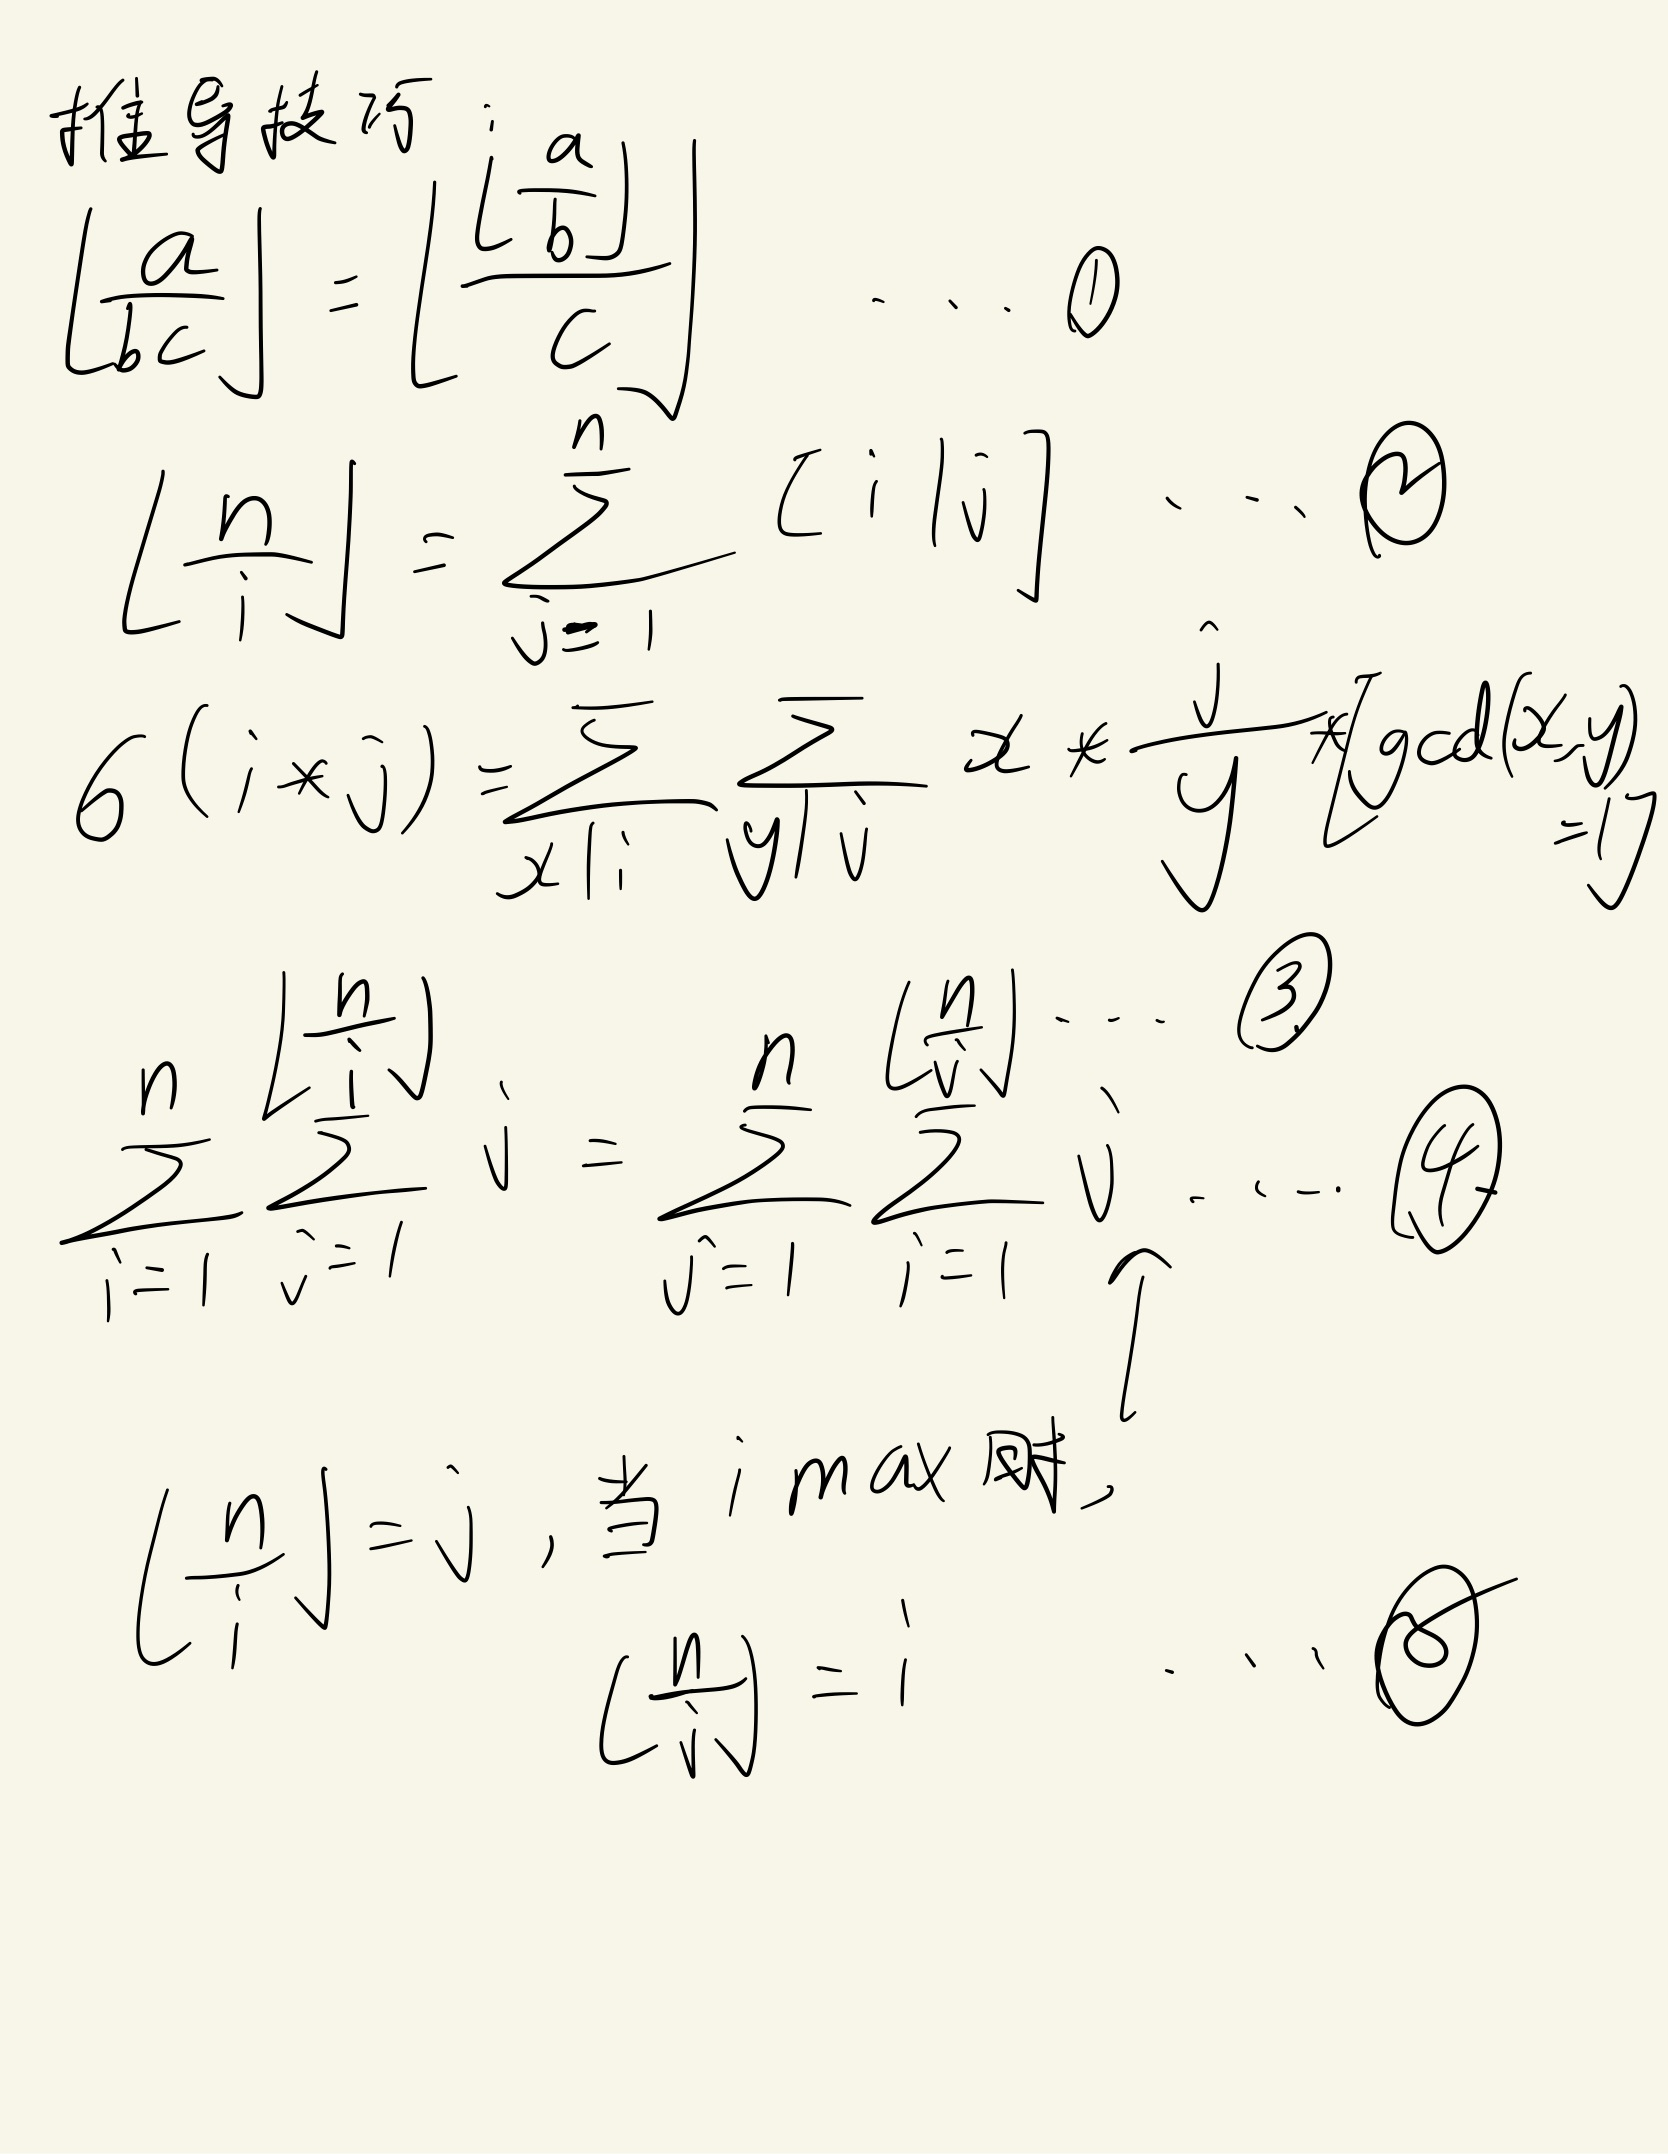 推导技巧:
⌊a/(bc)⌋ = ⌊⌊a/b⌋/c⌋ ...①
⌊n/i⌋ = ∑_{j=1}^{n} [i|j] ...②
6(i*j) = ∑_{x|i} ∑_{y|j} x * j/y * [gcd(x,y)=1]
...③
∑_{i=1}^{n} ∑_{j=1}^{⌊n/i⌋} j = ∑_{j=1}^{n} ∑_{i=1}^{⌊n/j⌋} j ...④
↑
⌊n/i⌋ = j , 当 i max 时,
⌊n/j⌋ = i ...